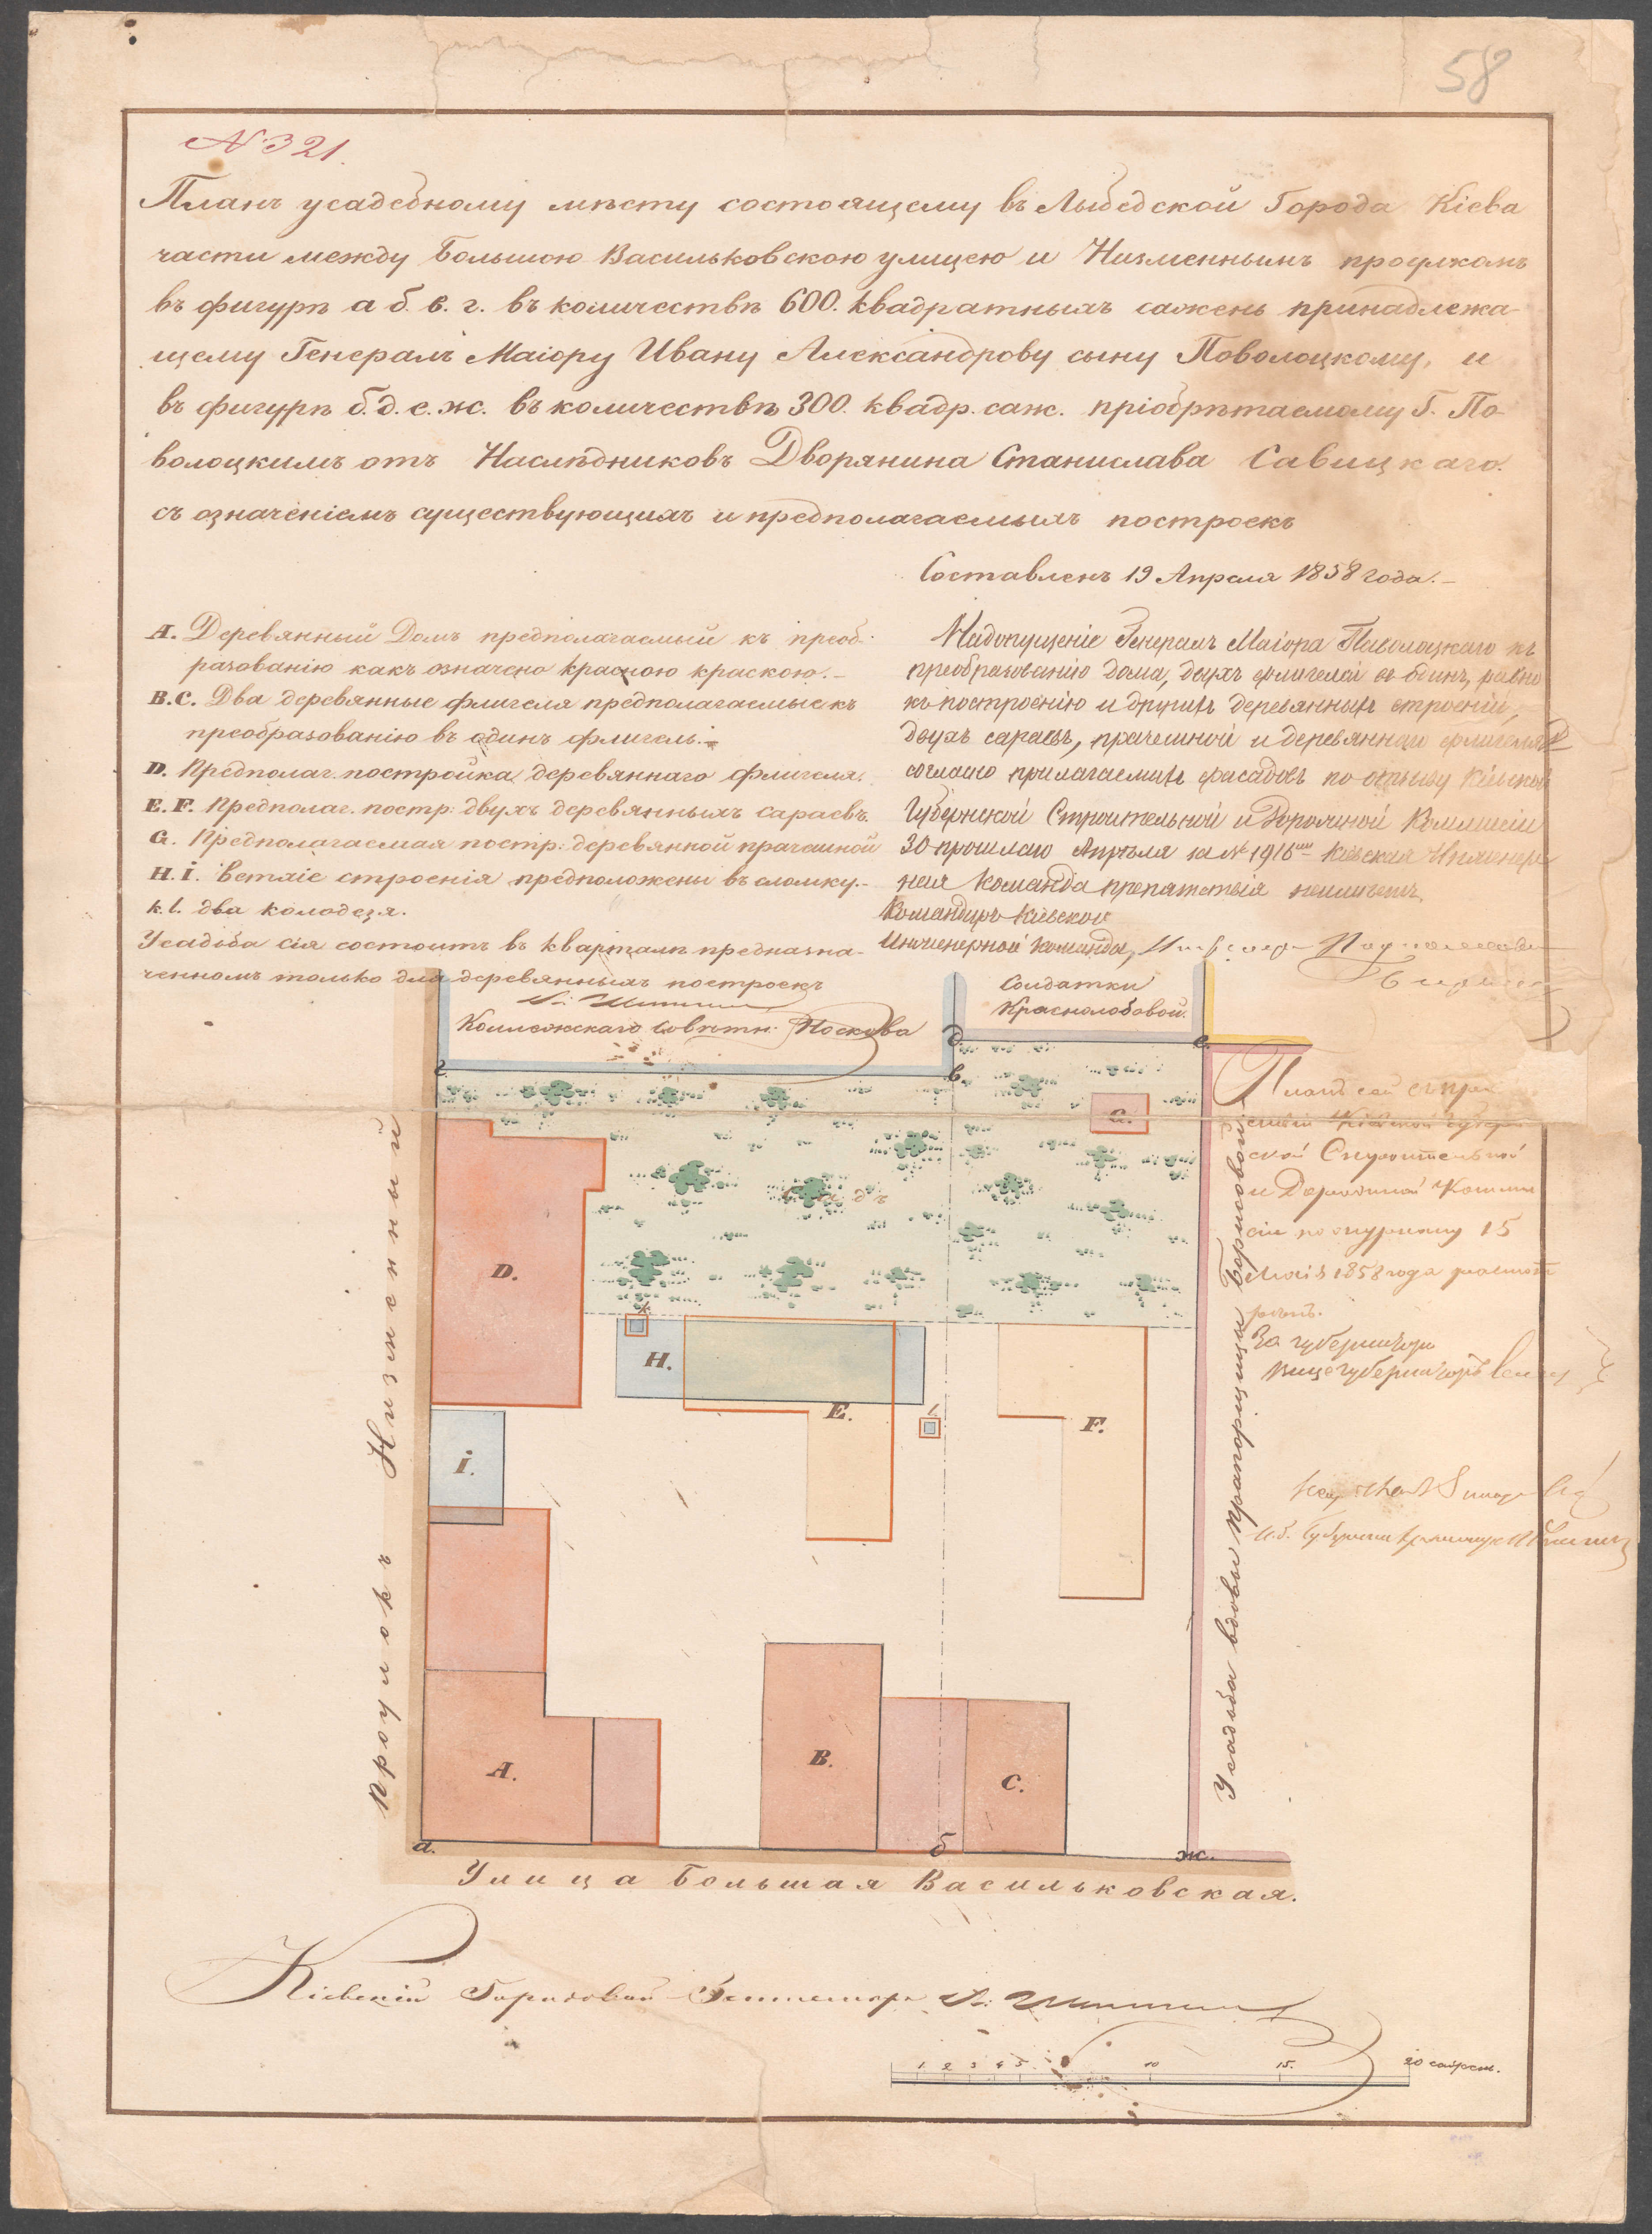 58
№ 321.
Планъ усадебному мѣсту состоящему въ Лыбедской Города Кіева
части между Большою Васильковскою улицею и Низменнымъ проулкомъ
въ фигурѣ а б. в. г. въ количествѣ 600. квадратныхъ сажень принадлежа-
щему Генералъ Маіору Ивану Александрову сыну Поволоцкому, и
въ фигурѣ б. д. е. ж. въ количествѣ 300. квадр. саж. пріобрѣтаемому Г. По-
волоцкимъ отъ Наслѣдниковъ Дворянина Станислава Савицкаго.
съ означеніемъ существующихъ и предполагаемыхъ построекъ
Составленъ 19 Апреля 1858 года.
A. Деревянный Домъ предполагаемый къ преоб-
разованію какъ означено красною краскою.
B.C. Два деревянные флигеля предполагаемые къ
преобразованію въ одинъ флигель.
D. Предполаг. постройка деревяннаго флигеля.
E.F. Предполаг. постр: двухъ деревянныхъ сараевъ.
G. Предполагаемая постр: деревянной прачешной
H.I. Ветхіе строенія предположены въ сломку.
k.l. два колодезя.
Усадьба сія состоитъ въ кварталѣ предназна-
ченномъ только для деревянныхъ построекъ
На допущеніе Генералъ Маіора Поволоцкаго къ
преобразованію дома, двухъ флигелей въ одинъ, равно
къ построенію и другихъ деревянныхъ строеній,
двухъ сараевъ, прачешной и деревяннаго флигеля
согласно прилагаемыхъ фасадовъ по отзыву Кіевской
Губернской Строительной и Дорожной Коммисіи
30 прошлаго Апрѣля за № 1916 Кіевская Инженер-
ная команда препятствія неимѣетъ.
Командиръ Кіевской
Инженерной команды,
Коллежскаго Совѣтн: Носкова
Солдатки
Краснолобовой.
г.
в.
д
е.
Планъ сей
Кіевской Губерн
ской Строительной
и Дорожной Комми
сіи по журналу 15
Маія 1858 года
За Губернатора
Вицегубернаторъ
G.
Садъ
D.
k.
H.
E.
l.
F.
i.
A.
B.
C.
а.
б
ж.
Проулокъ Низменный
Усадьба вдовы прапорщицы Борисовой
Улица Большая Васильковская.
Кіевскій Городовой Землемѣръ
1 2 3 4 5 10 15. 20 саженъ.